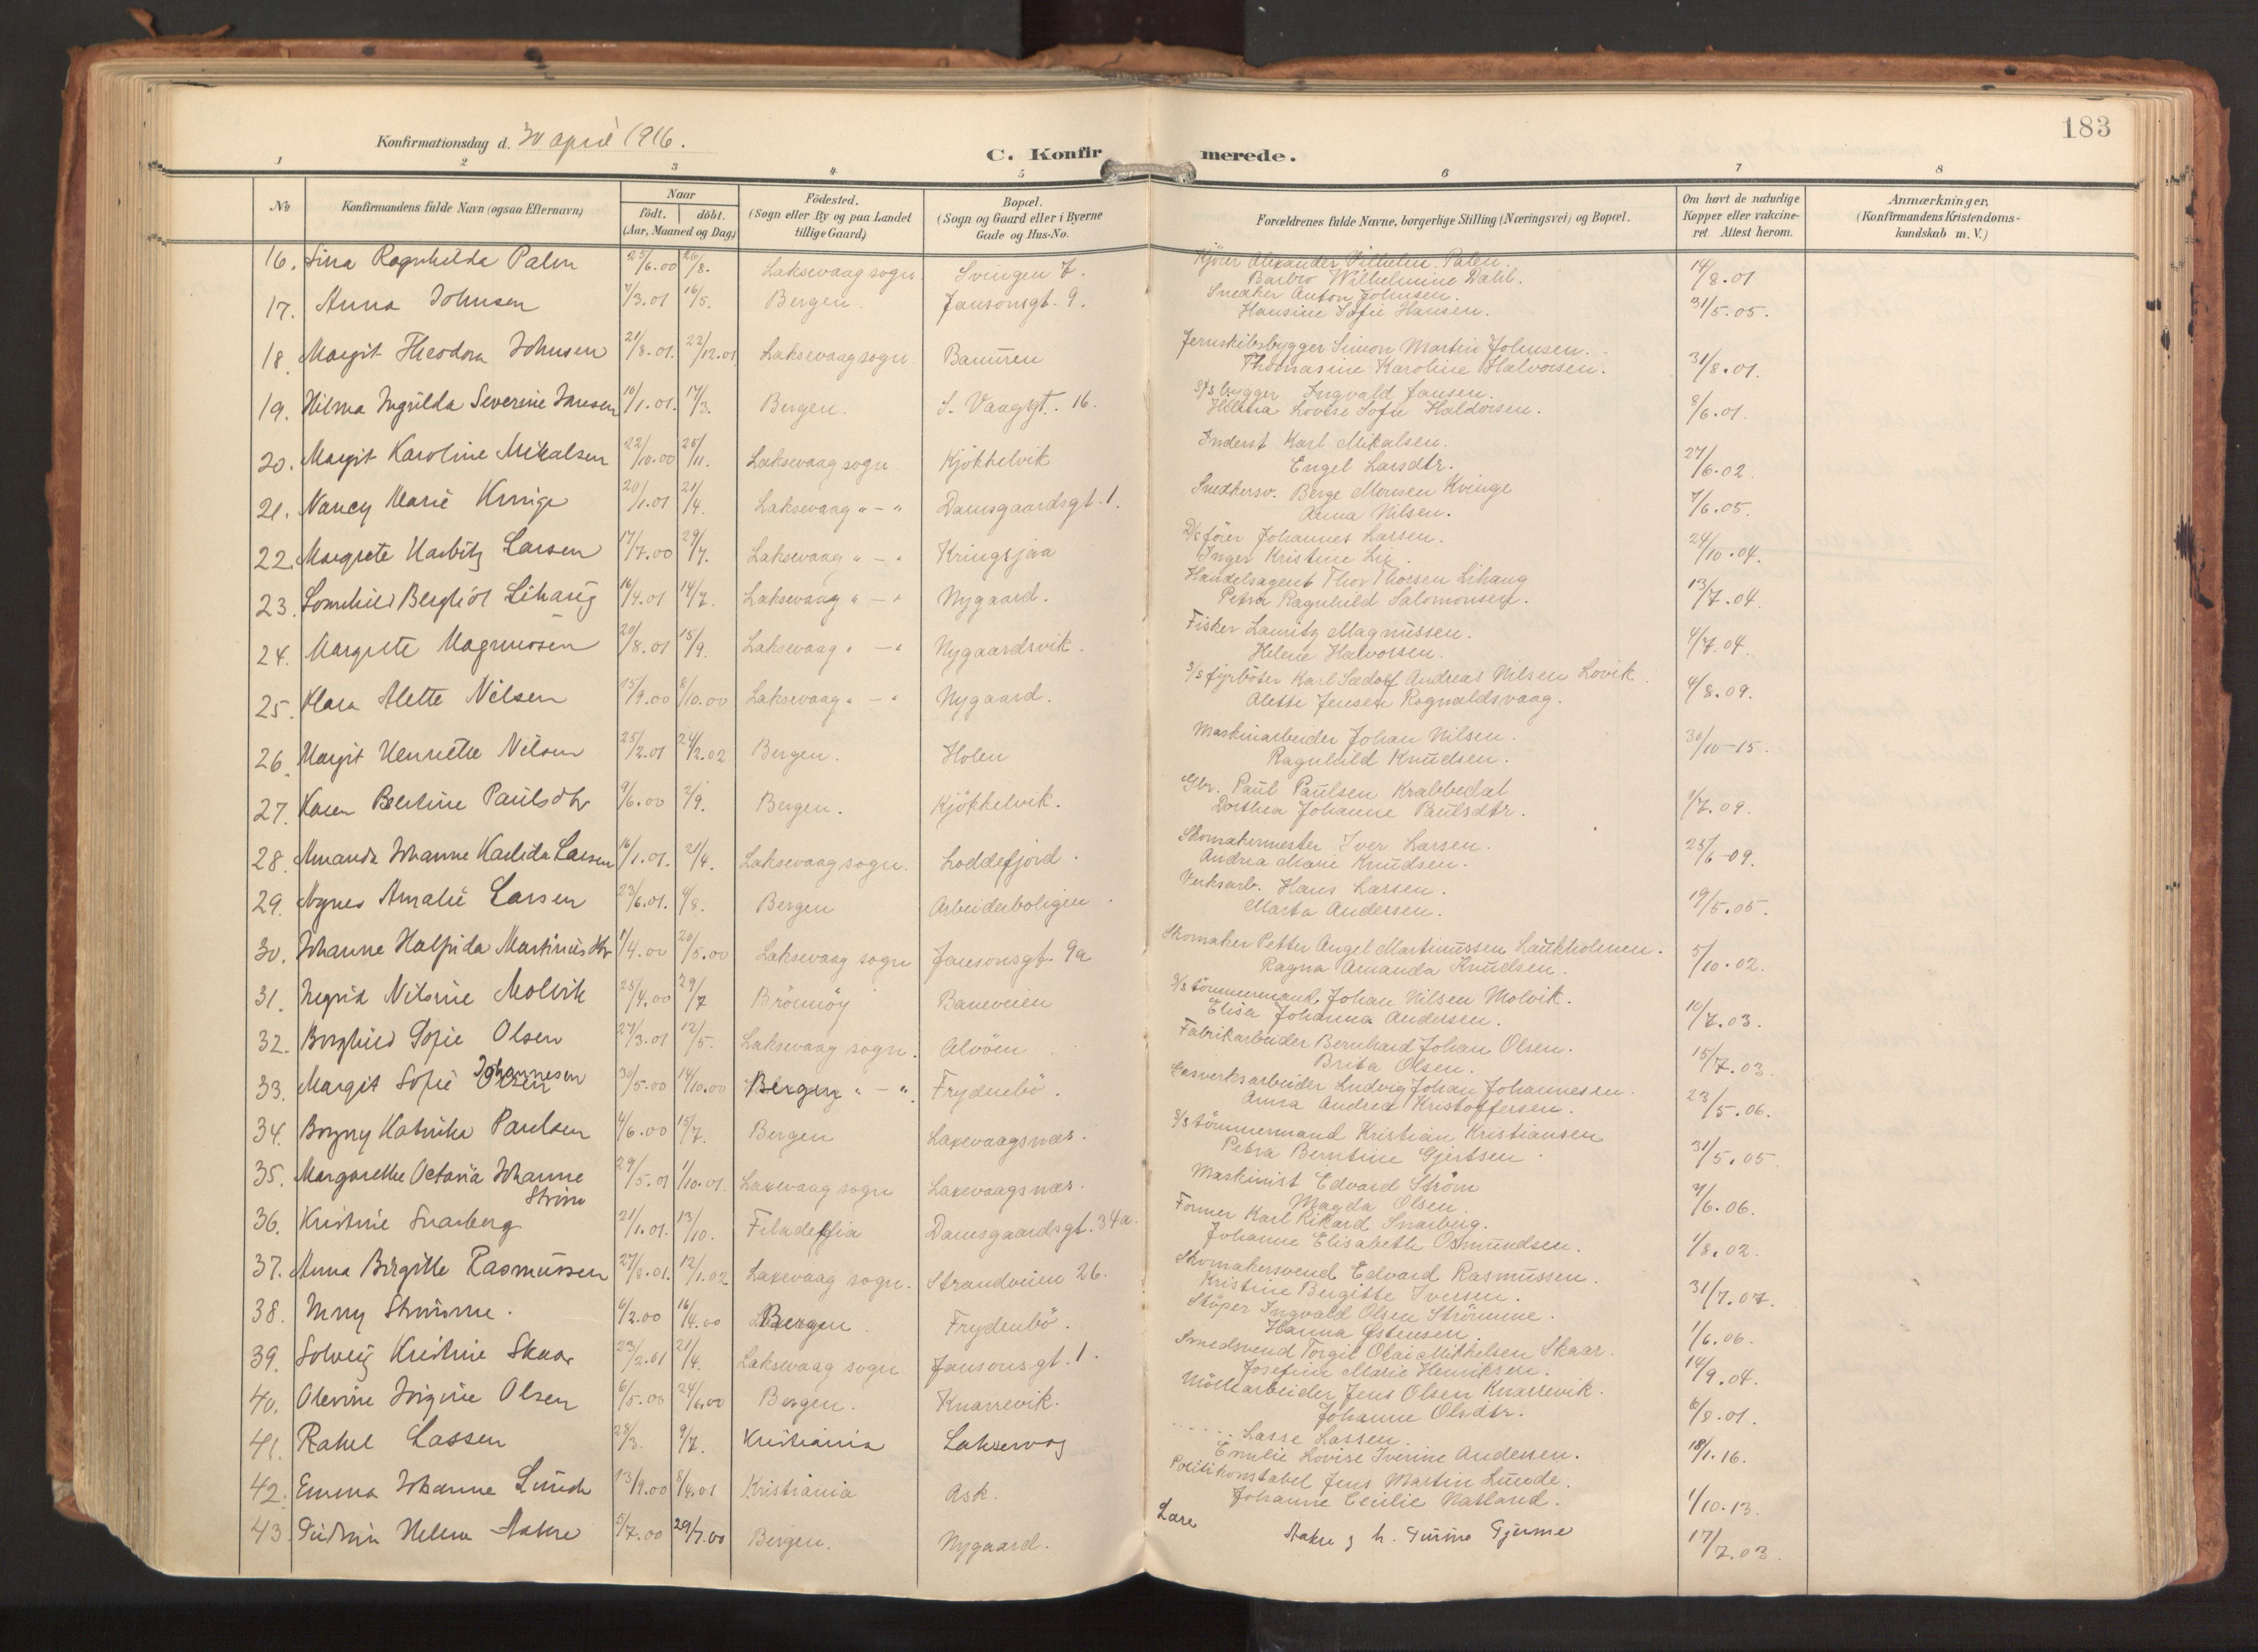 183
Konfirmationsdag d. 30 april 1916.
C. Konfirmerede.
1 2 3 4 5 6 7 8
No
Konfirmandens fulde Navn (ogsaa Efternavn)
Naar
födt. döbt.
(Aar, Maaned og Dag)
Födested.
(Sogn eller By og paa Landet
tillige Gaard)
Bopæl.
(Sogn og Gaard eller i Byerne
Gade og Hus-No.
Forældrenes fulde Navne, borgerlige Stilling (Næringsvei) og Bopæl.
Om havt de naturlige
Kopper eller vakcine-
ret. Attest herom.
Anmærkninger.
(Konfirmandens Kristendoms-
kundskab m. V.)
16. Lina Ragnhilda Palm 25/6.00 26/8. Laksevaag sogn Svingen 7. Kjörer Alexander Vilhelm Palm. 14/8.01
Barbro Wilhelmine Dahl.
17. Anna Johnsen 7/3.01 16/5. Bergen. Jansonsgt. 9. Snedker Anton Johnsen. 31/5.05.
Hansine Sofie Hansen.
18. Margit Theodora Johnsen 21/8.01. 22/12.01 Laksevaag sogn Banuren Jernskibsbygger Simon Martin Johnsen. 31/8.01.
Thomasine Karoline Halvorsen.
19. Hilma Ingvilda Severine Jansen 10/1.01. 17/3. Bergen. S. Vaagsgt. 16. S/s bygger Ingvald Jansen. 8/6.01.
Helena Lovise Sofie Haldorsen.
20. Margit Karoline Mikalsen 22/10.00 25/11. Laksevaag sogn Kjökkelvik Inderst Karl Mikalsen. 27/6.02
Engel Larsdtr.
21. Nancy Marie Kvinge 20/1.01 21/4. Laksevaag " - " Damsgaardsgt. 1. Snedkersv. Berge Monsen Kvinge 7/6.05.
Anna Nilsen.
22. Margrete Harbitz Larsen 17/7.00 29/7. Laksevaag " - " Kringsjaa D/s förer Johannes Larsen. 24/10.04.
Inger Kristine Lie.
23. Bergliot Lihaug 16/4.01 14/7. Laksevaag " - " Nygaard. Handelsagent Thor Thorsen Lihaug 13/7.04.
Petra Ragnhild Salomonsen.
24. Margrete Magnussen 20/8.01 15/9. Laksevaag " - " Nygaardsvik. Fisker Lauritz Magnussen. 4/7.04.
Helene Halvorsen.
25. Klara Alette Nilsen 15/9.00 8/10.00 Laksevaag " - " Nygaard. S/s fyrböter Karl Sædolf Andreas Nilsen Lovik. 4/8.09.
Alette Jensen Rognaldsvaag.
26. Margit Henriette Nilsen 25/2.01 24/2.02 Bergen. Holen Maskinarbeider Johan Nilsen. 30/10-15.
Ragnhild Knudsen.
27. Karen Bertine Paulsdtr 9/6.00 2/9. Bergen. Kjökkelvik. Gbr. Paul Paulsen Krabbedal 1/7.09.
Dorthea Johanne Paulsdtr.
28. Amanda Johanne Larsen 16/1.01. 21/4. Laksevaag sogn. Loddefjord. Skomakermester Iver Larsen. 25/6-09.
Andrea Marie Knudsen.
29. Agnes Amalie Larsen 23/6.01. 4/8. Bergen Arbeiderboligen. Verksarb. Hans Larsen. 19/5.05.
Marta Andersen.
30. Johanne Halfrida Martinusdtr 1/4.00 20/5.00 Laksevaag sogn Jansonsgt. 9a Skomaker Petter Angel Martinussen Laukholmen. 5/10.02.
Ragna Amanda Knudsen.
31. Ingrid Nilsine Molvik 25/4.00 29/7 Brönnöy Baneveien S/s tömmermand Johan Nilsen Molvik. 10/7.03.
Elisa Johanna Andersen.
32. Borghild Sofie Olsen 27/3.01 12/5. Laksevaag sogn. Alvöen Fabrikarbeider Bernhard Johan Olsen. 15/7.03.
Brita Olsen.
33. Margit Sofie Olsen Johannesen 30/5.00 14/10.00 Bergen " - " Frydenbö. Gasverksarbeider Ludvig Johan Johannesen. 23/5.06.
Anna Andrea Kristoffersen.
34. Borgny Katinka Paulsen 4/6.00 15/7. Bergen Laxevaagsnæs. S/s tömmermand Kristian Kristiansen 31/5.05
Petra Berntine Gjertsen.
35. Margarethe Octavia Johanne 29/5.01 1/10.01. Laxevaag sogn Laxevaagsnæs. Maskinist Edvard Ström 7/6.06.
Ström
Magda Olsen.
36. Kristine Snarberg 21/1.01. 13/10. Filadelfia Damsgaardsgt. 34a. Former Karl Rikard Snarberg. 1/8.02.
Johanne Elisabeth Osmundsen.
37. Anna Birgitte Rasmussen 27/8.01. 12/1.02 Laxevaag sogn. Strandveien 26. Skomakersvend Edvard Rasmussen. 31/7.07.
Kristine Bergitte Iversen.
38. Strömme. 6/2.00 16/4.00 Bergen Frydenbö. Stöper Ingvald Olsen Strömme. 1/6.06.
Hanna Östensen
39. Solveig Kristine Skaar 23/2.01 21/4. Laksevaag sogn Jansonsgt. 1. Smedsvend Torgil Olai Mikkelsen Skaar. 14/9.04.
Josefine Marie Henriksen.
40. Olevine Jörgine Olsen 6/5.00 24/6.00 Bergen. Knarrevik. Möllearbeider Jens Olsen Knarrevik. 6/8.01.
Johanne Olsdtr.
41. Rakel Lassen 28/3. 9/7. Kristiania Laksevag ..... Lasse Lassen. 18/1.16.
Emelie Lovise Iverine Andersen.
42. Emma Johanne Lunde 13/9.00 8/4.01 Kristiania Ask. Politikonstabel Jens Martin Lunde. 1/10.13.
Johanne Cecilie Natland.
43. Gudrun Helene Aakre 5/7.00 29/7.00 Bergen. Nygaard. Lars Aakre og h. Gurine Gjerme 17/7.03.